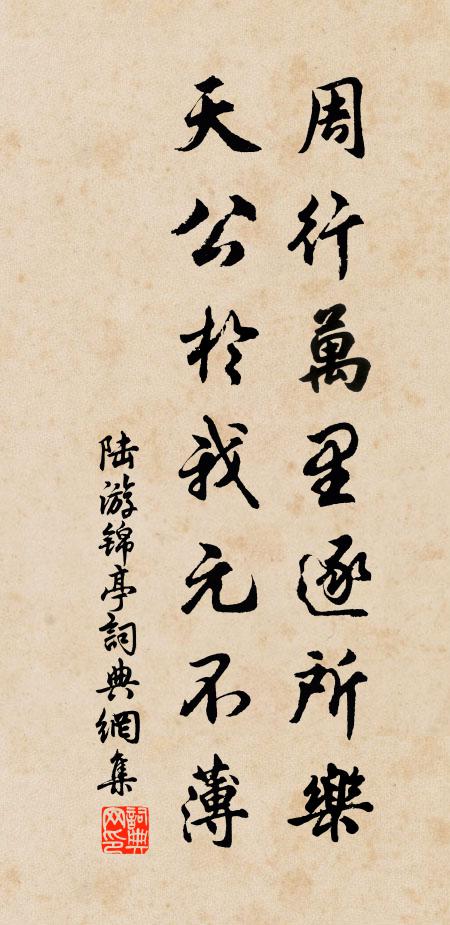 周行萬里逐所樂
天公於我元不薄
陆游锦亭詞典網集
詞典网印